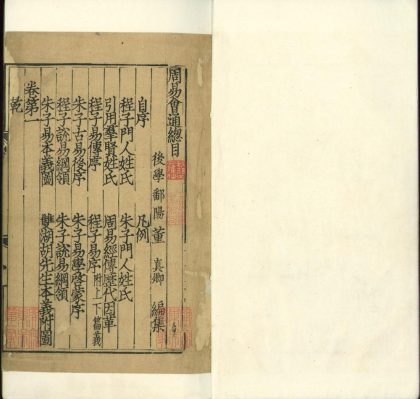 周易會通總目
後學鄱陽董 真卿 編集
自序 凡例
程子門人姓氏 朱子門人姓氏
引用羣賢姓氏 周易經傳歷代因革
程子易傳序 程子易序 附上下篇義
朱子古易後序 朱子易學啓蒙序
程子說易綱領 朱子說易綱領
朱子易本義圖 雙湖胡先生本義附圖
卷第一
乾